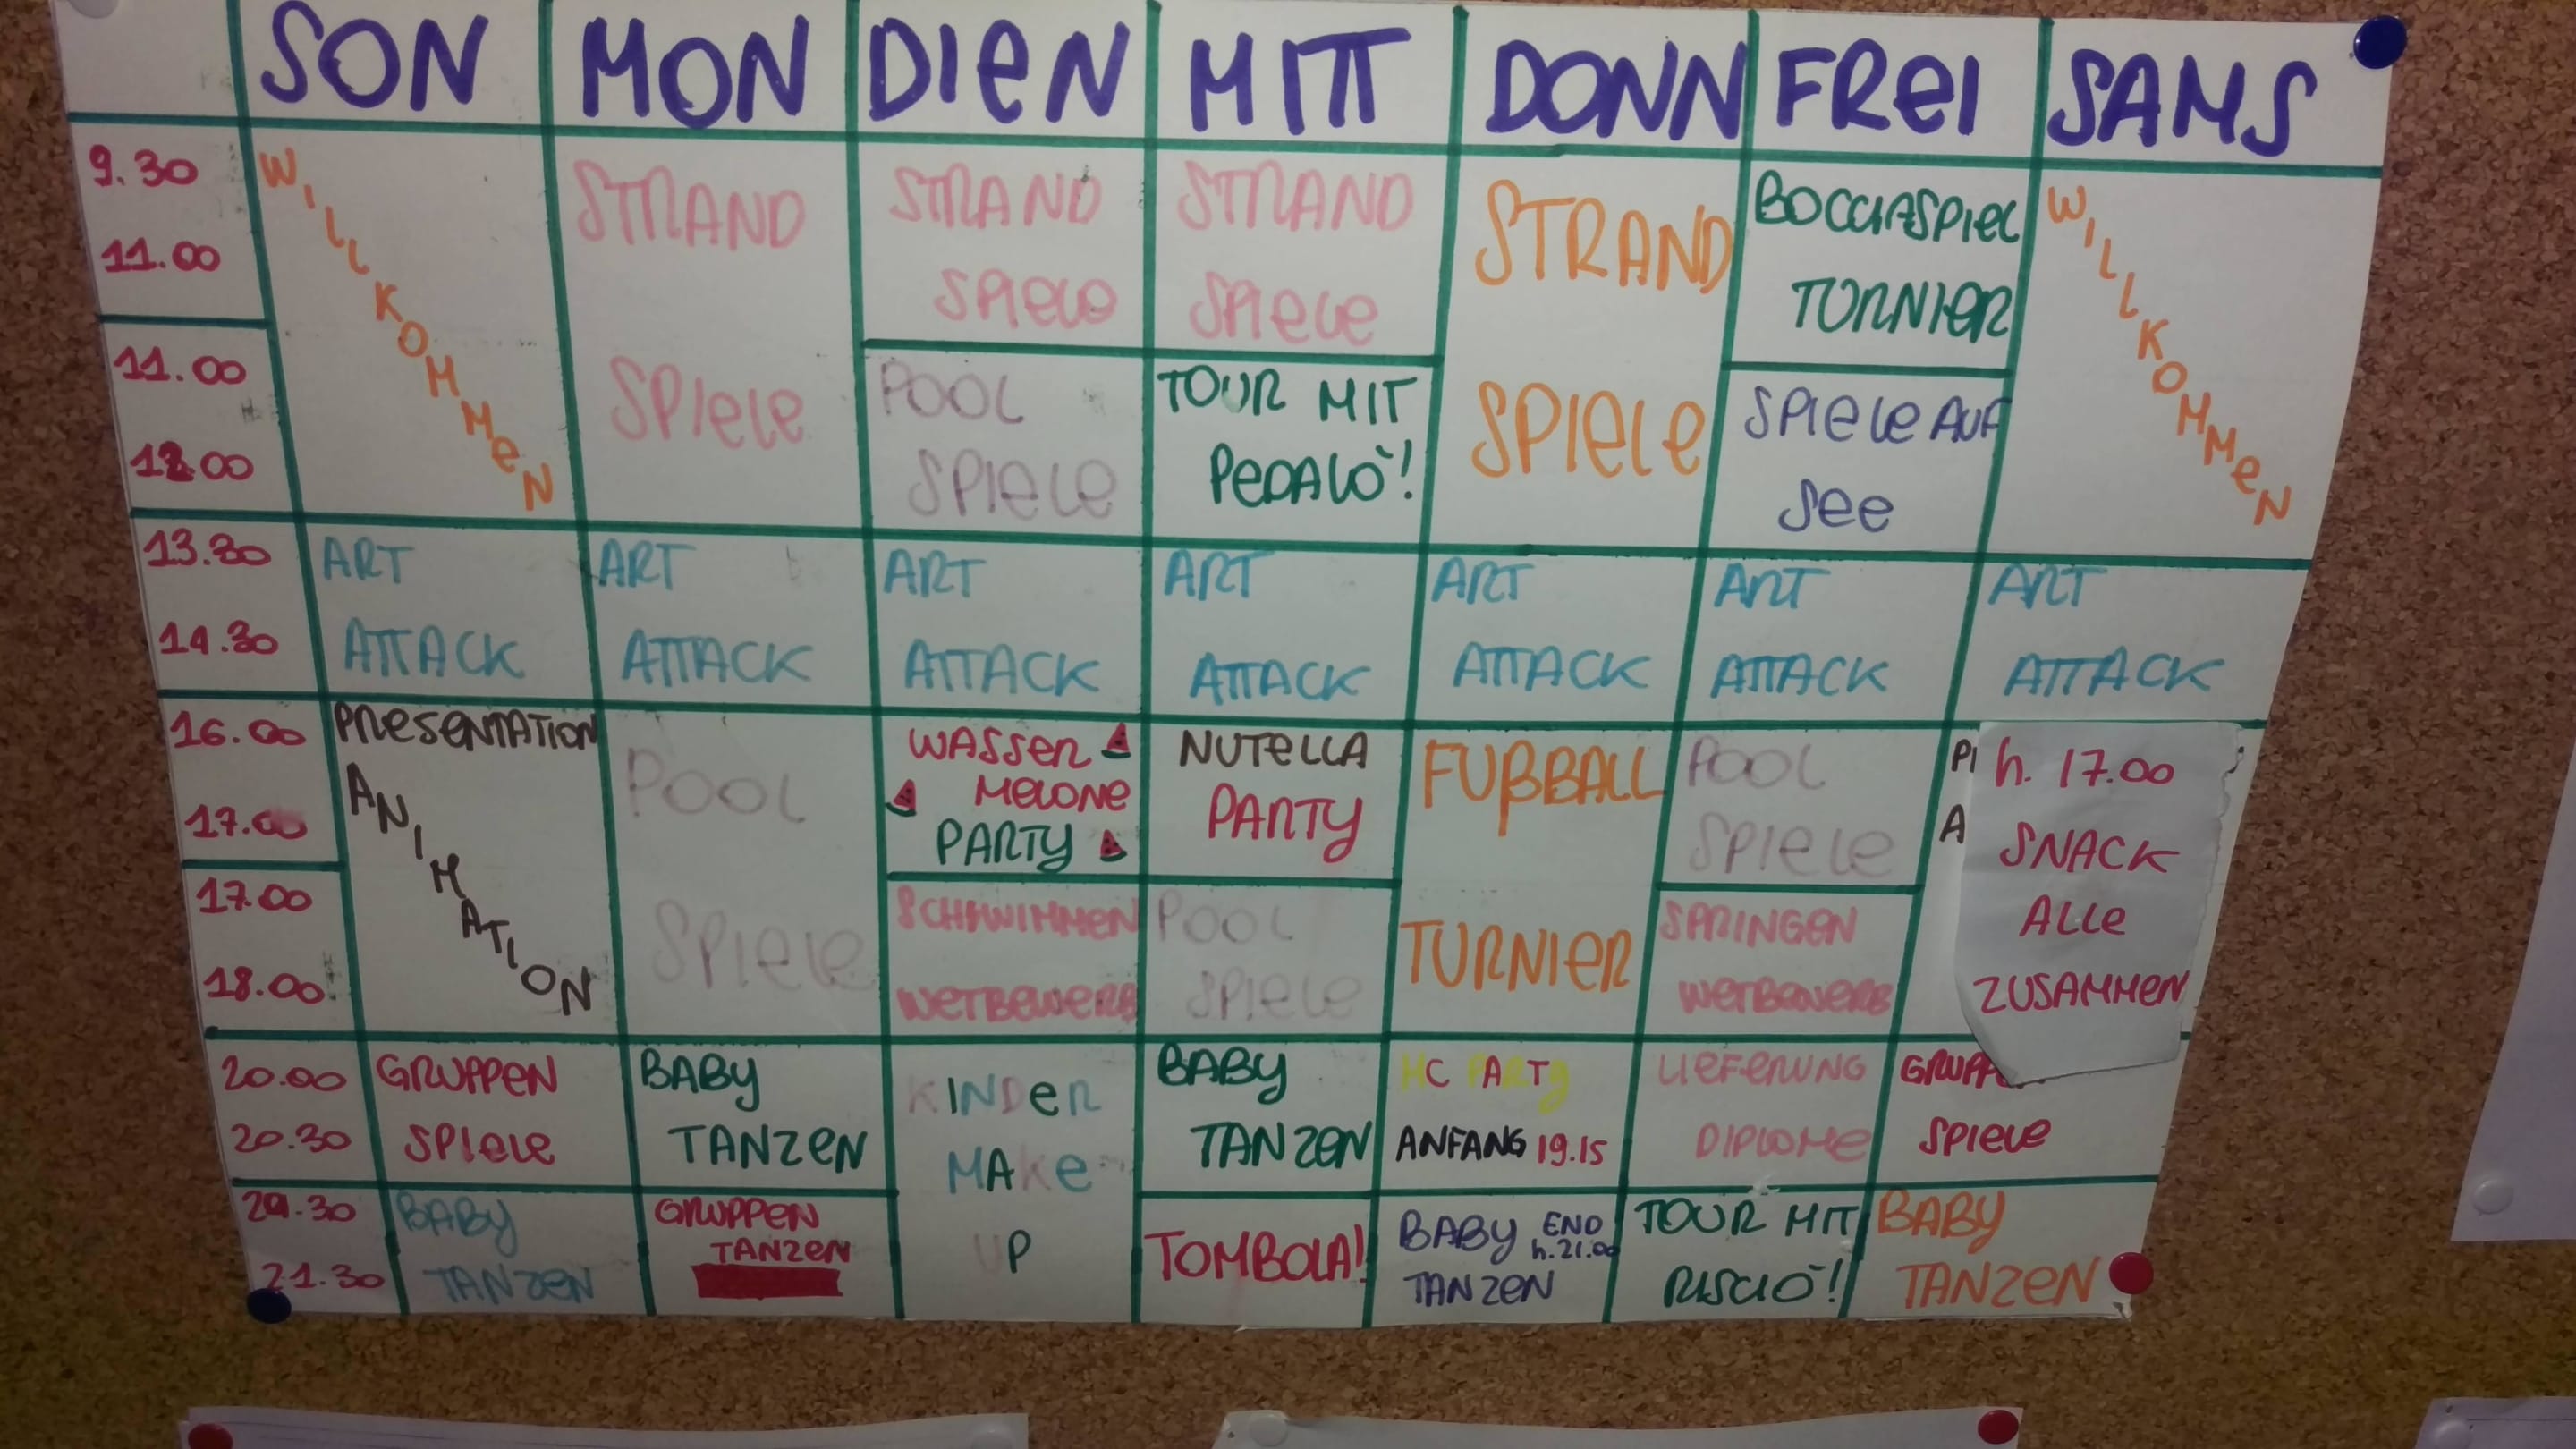 SON MON DIEN MITT DONN FREI SAMS
9.30
11.00
WILLKOMMEN
STRAND
SPIELE
STRAND
SPIELE
STRAND
SPIELE
STRAND
SPIELE
BOCCIASPIEL
TURNIER
WILLKOMMEN
11.00
12.00
POOL
SPIELE
TOUR MIT
PEDALÒ!
SPIELE AUF
SEE
13.30
14.30
ART
ATTACK
ART
ATTACK
ART
ATTACK
ART
ATTACK
ART
ATTACK
ART
ATTACK
ART
ATTACK
16.00
17.00
PRESENTATION
ANIMATION
POOL
SPIELE
WASSER
MELONE
PARTY
NUTELLA
PARTY
FUßBALL
TURNIER
POOL
SPIELE
h. 17.00
SNACK
ALLE
ZUSAMMEN
17.00
18.00
SCHWIMMEN
WETBEWERB
POOL
SPIELE
SPRINGEN
WETBEWERB
20.00
20.30
GRUPPEN
SPIELE
BABY
TANZEN
KINDER
MAKE
UP
BABY
TANZEN
HC PARTY
ANFANG 19.15
LIEFERUNG
DIPLOME
GRUPP
SPIELE
20.30
21.30
BABY
TANZEN
GRUPPEN
TANZEN
TOMBOLA!
BABY END
h.21.00
TANZEN
TOUR MIT
RISCIÒ!
BABY
TANZEN